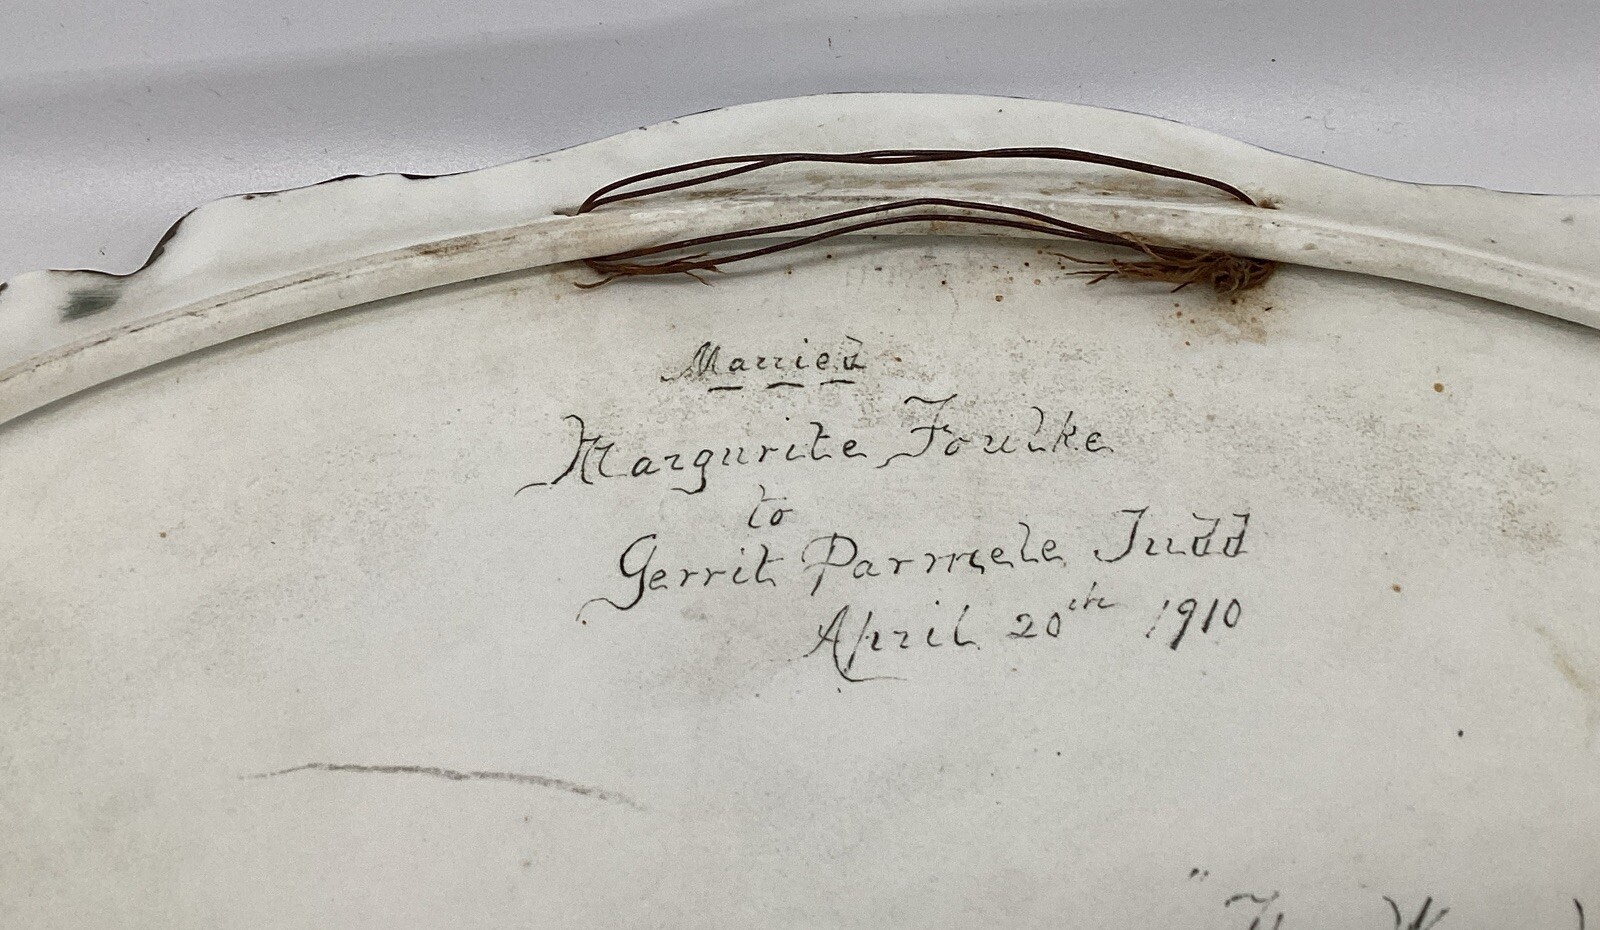 Married
Margurite Foulke
to
Gerrit Parmele Judd
April 20th 1910